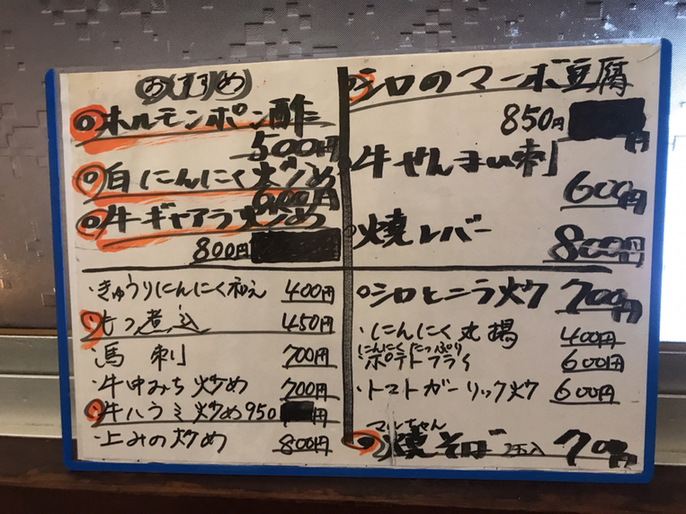 おすすめ
ホルモンポン酢
500円
白にんにく炒め
600円
牛ギャアラ炒め
800円
・きゅうりにんにく和え 400円
・もつ煮込 450円
・馬刺 700円
・牛中みち炒め 700円
・牛ハラミ炒め 950円
・上みの炒め 800円
シロのマーボ豆腐
850円
牛せんまい刺
600円
焼レバー
800円
シロとニラ炒 700円
・にんにく丸揚 400円
にんにくたっぷり
ポテトフライ 600円
・トマトガーリック炒 600円
マルちゃん
焼そば 2玉入 700円